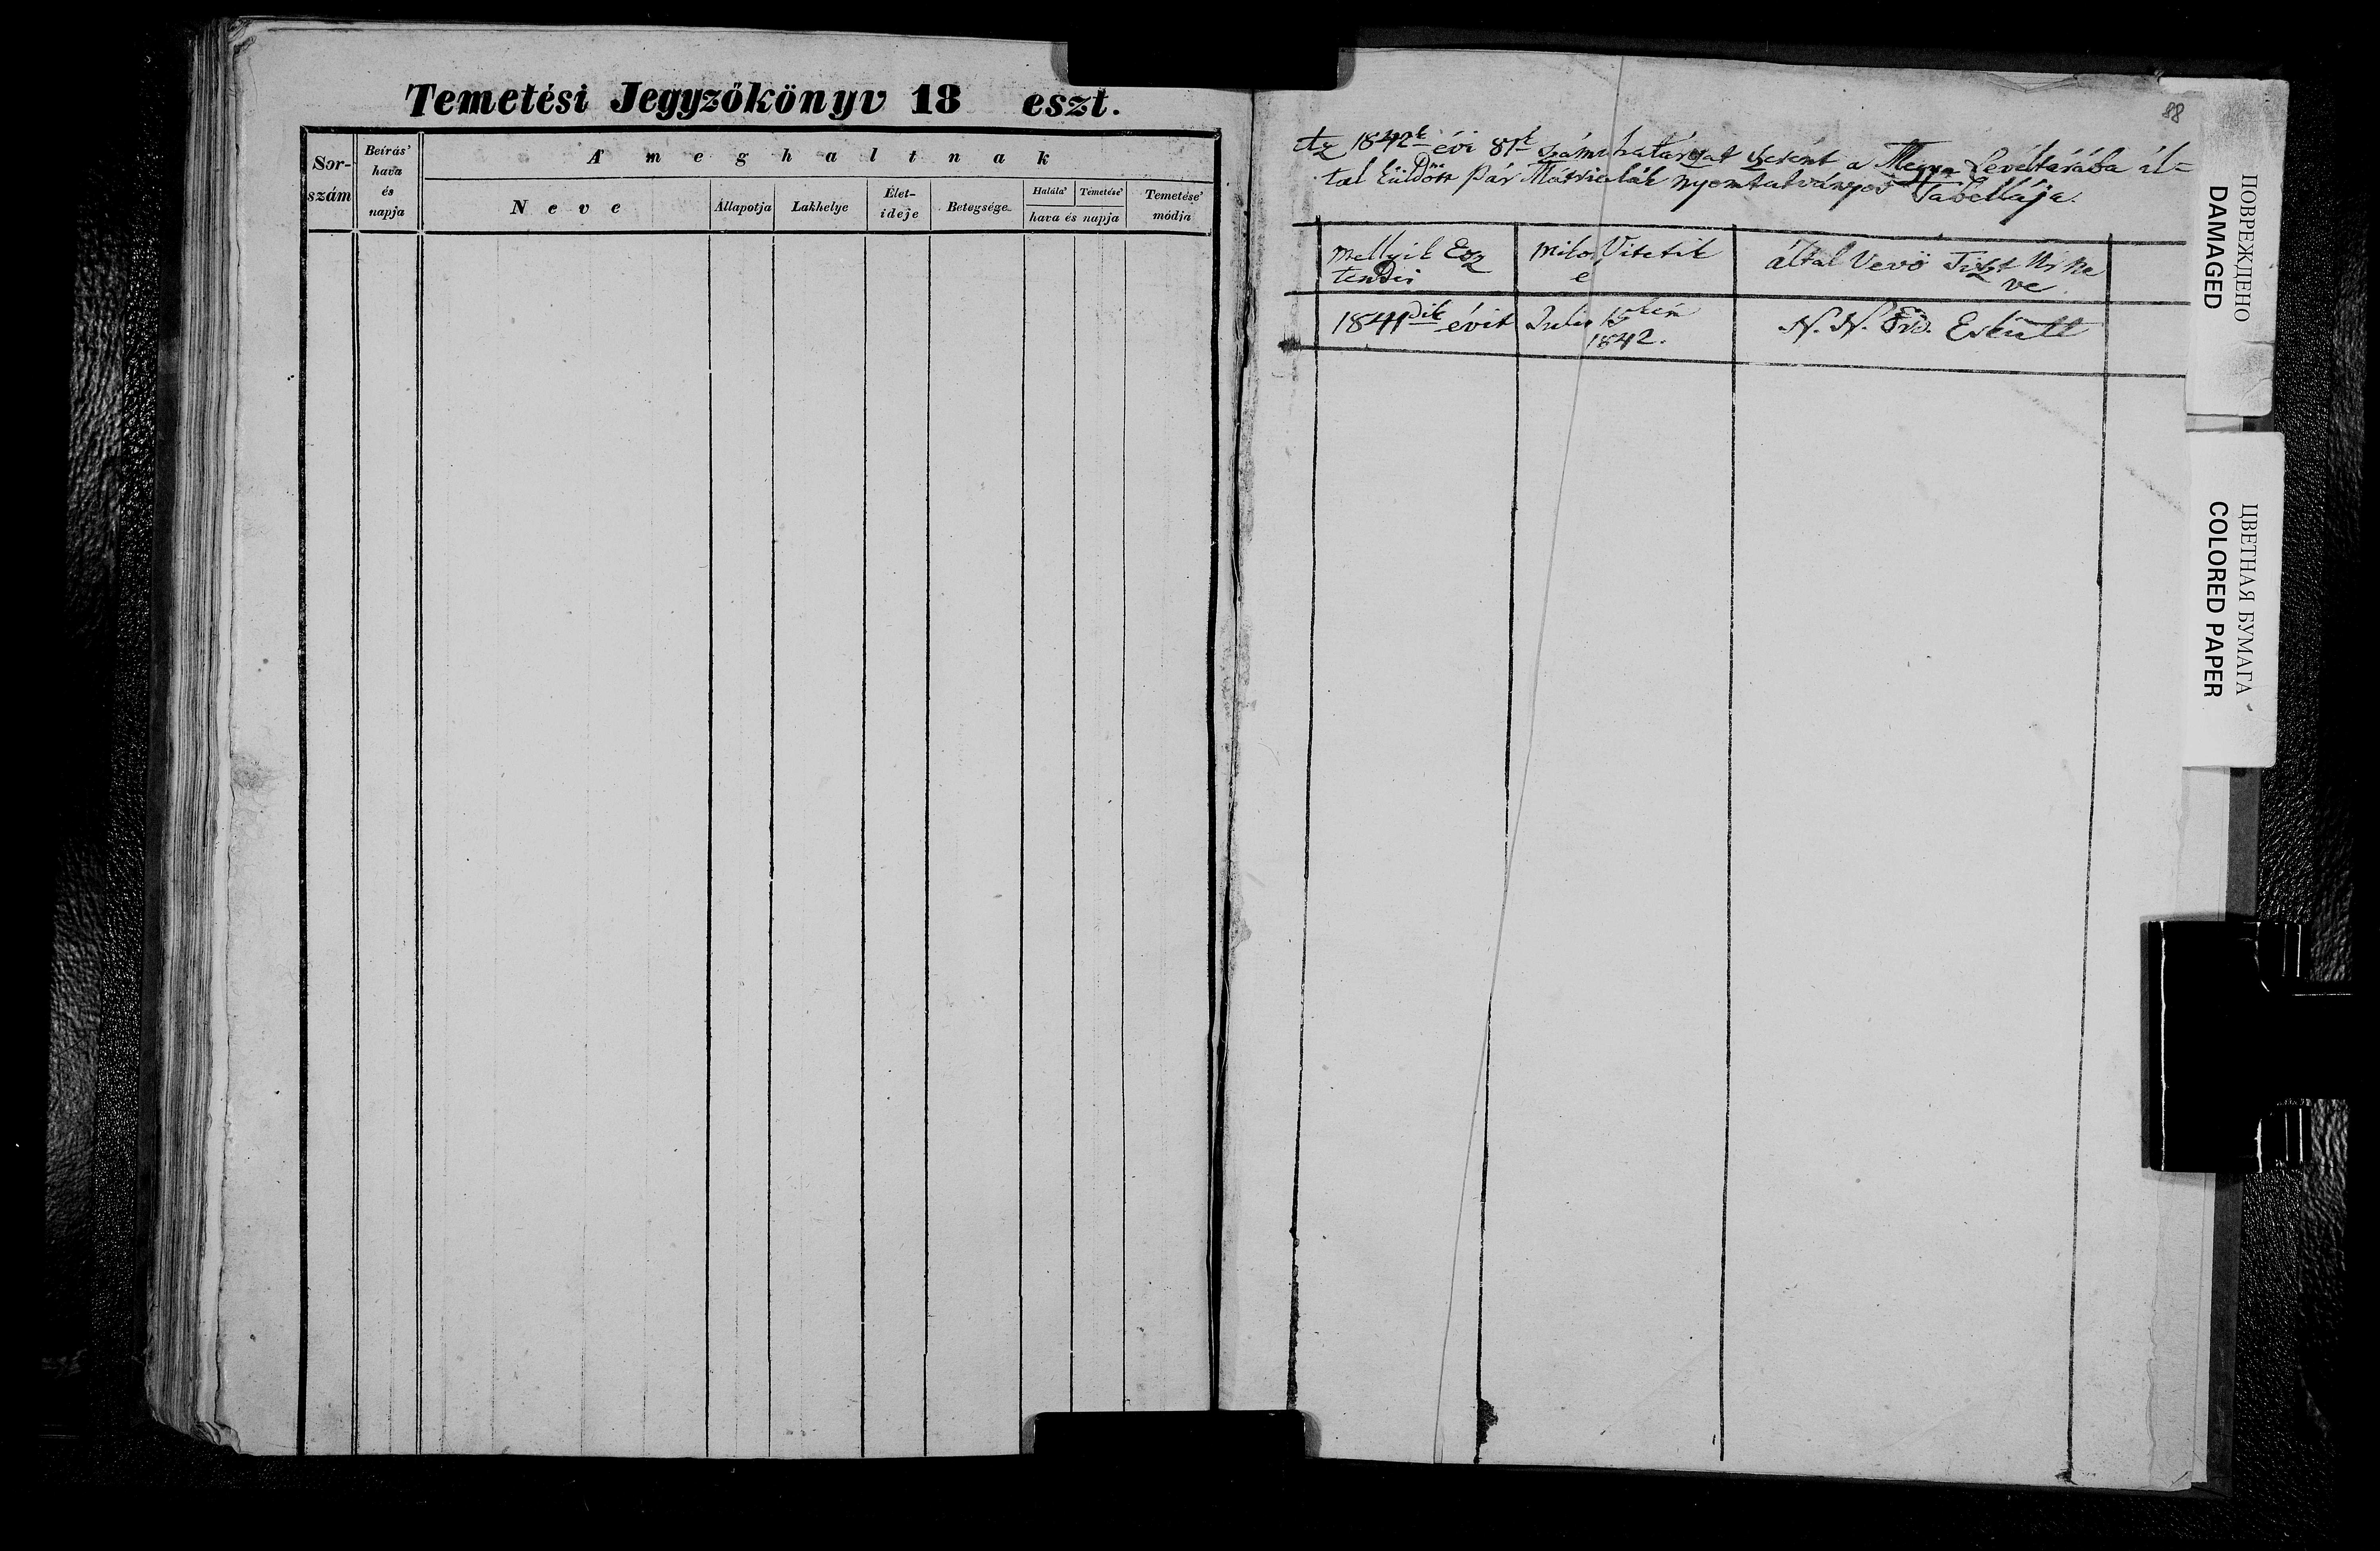 Temetési Jegyzőkönyv 18 eszt.
Sor-
szám
Beírás'
hava
és
napja
A' m e g h a l t n a k
N e v e
Állapotja
Lakhelye
Élet-
ideje
Betegsége
Halála'
Témetése'
hava és napja
Temetése'
módja
88
Az 1842 évi 81 számu határozat szerént a Megye Levéltárába ál-
tal küldött Pár Matriculák nyomtatványos Tabellája.
Mellyik Esz
tendei
Mikor Vitetik
e
által Vevö Tiszt Ur ne
ve
1841dik évit
Julis
1842.
N. N. Esküdt
ПОВРЕЖДЕНО
DAMAGED
ЦВЕТНАЯ БУМАГА
COLORED PAPER